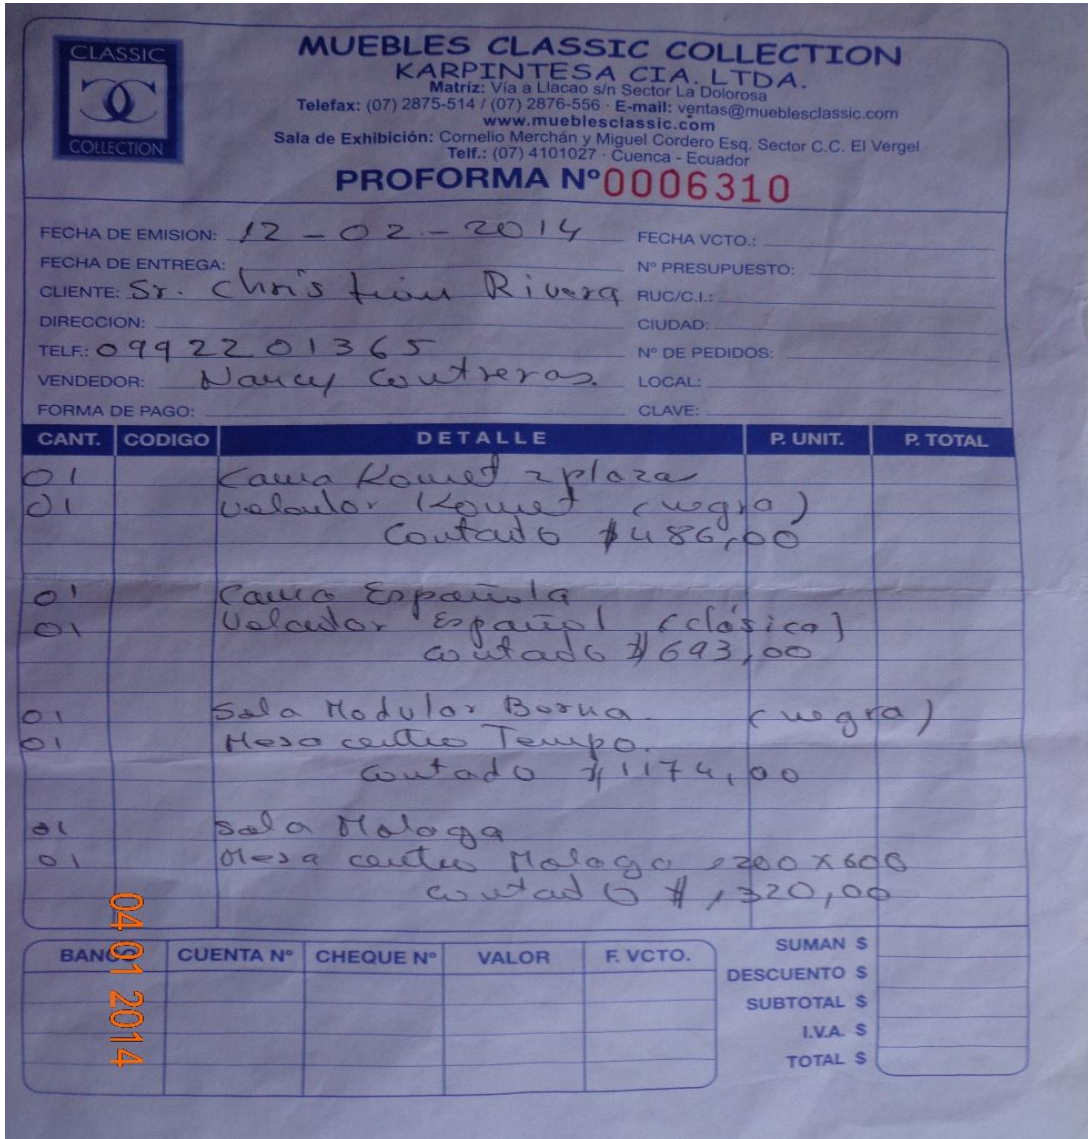 CLASSIC
COLLECTION
MUEBLES CLASSIC COLLECTION
KARPINTESA CIA. LTDA.
Matríz: Vía a Llacao s/n Sector La Dolorosa
Telefax: (07) 2875-514 / (07) 2876-556 · E-mail: ventas@mueblesclassic.com
www.mueblesclassic.com
Sala de Exhibición: Cornelio Merchán y Miguel Cordero Esq. Sector C.C. El Vergel
Telf.: (07) 4101027 · Cuenca - Ecuador
PROFORMA Nº 0006310
FECHA DE EMISION: 12 - 02 - 2014 FECHA VCTO.:
FECHA DE ENTREGA: Nº PRESUPUESTO:
CLIENTE: Sr. Christian Rivera RUC/C.I.:
DIRECCION: CIUDAD:
TELF.: 0992201365 Nº DE PEDIDOS:
VENDEDOR: Nancy Contreras. LOCAL:
FORMA DE PAGO: CLAVE:
CANT. CODIGO DETALLE P. UNIT. P. TOTAL
01 Cama Komet 2 plaza
01 Velador Komet (negra)
Contado $486,00
01 Cama Española
01 Velador Español (clásico)
contado $693,00
01 Sala Modular Berna (negra)
01 Mesa centro Tempo.
contado $1174,00
01 Sala Malaga
01 Mesa centro Malaga 1200 x 600
contado $1320,00
BANCO CUENTA Nº CHEQUE Nº VALOR F. VCTO.
SUMAN $
DESCUENTO $
SUBTOTAL $
I.V.A. $
TOTAL $
04 01 2014